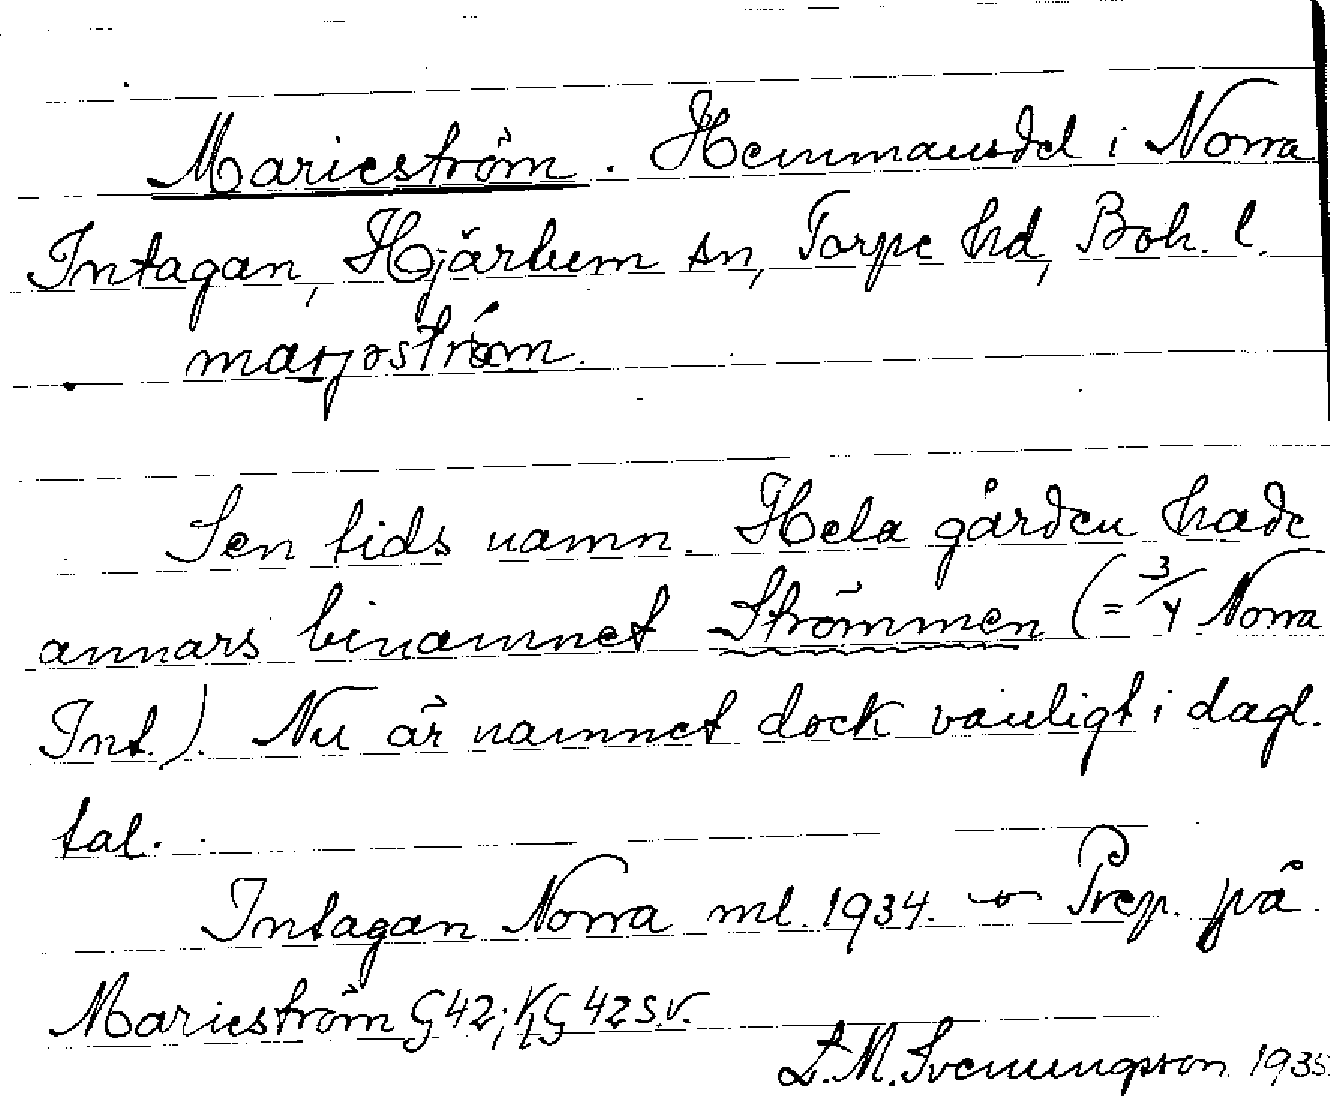 Marieström. Hemmansdel i Norra
Intagan, Hjärtum sn, Torpe hd, Boh. l.
Sen tids namn. Hela gården hade
annars binamnet Strömmen (= 3/4 Norra
Int.). Nu är namnet dock vanligt i dagl.
tal.
Intagan Norra ml. 1934. Prep. på
Marieström G42; KG 42 S.V.
L.M. Svenungsson 1935